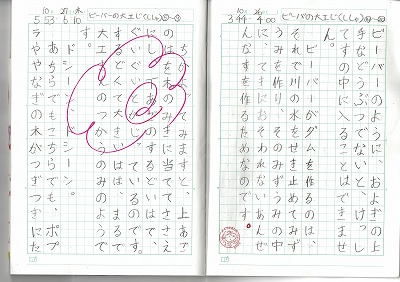 ビーバーの大工じ
ビーバーのように、およぎの上
手などうぶつでないと、けっし
てすの中に入ることはできませ
ん。
ビーバーがダムを作るのは、
それで川の水をせき止めてみず
うみを作り、みずうみの中
にてきにおそわれないあんぜ
んなすを作るためなのです。
ビーバーの大工じ
ちかよってみますと、上あご
のはを木のみきに当ててささえ
にし、下あごのするどいはで、
ぐいぐいとかじっているのです。
するどくて大きいはは、まるで
大工さんのつかうのみのようで
す。
ドシーン、ドシーン。
あちらでもこちらでも、ポプ
ラややなぎの木がつぎつぎにた